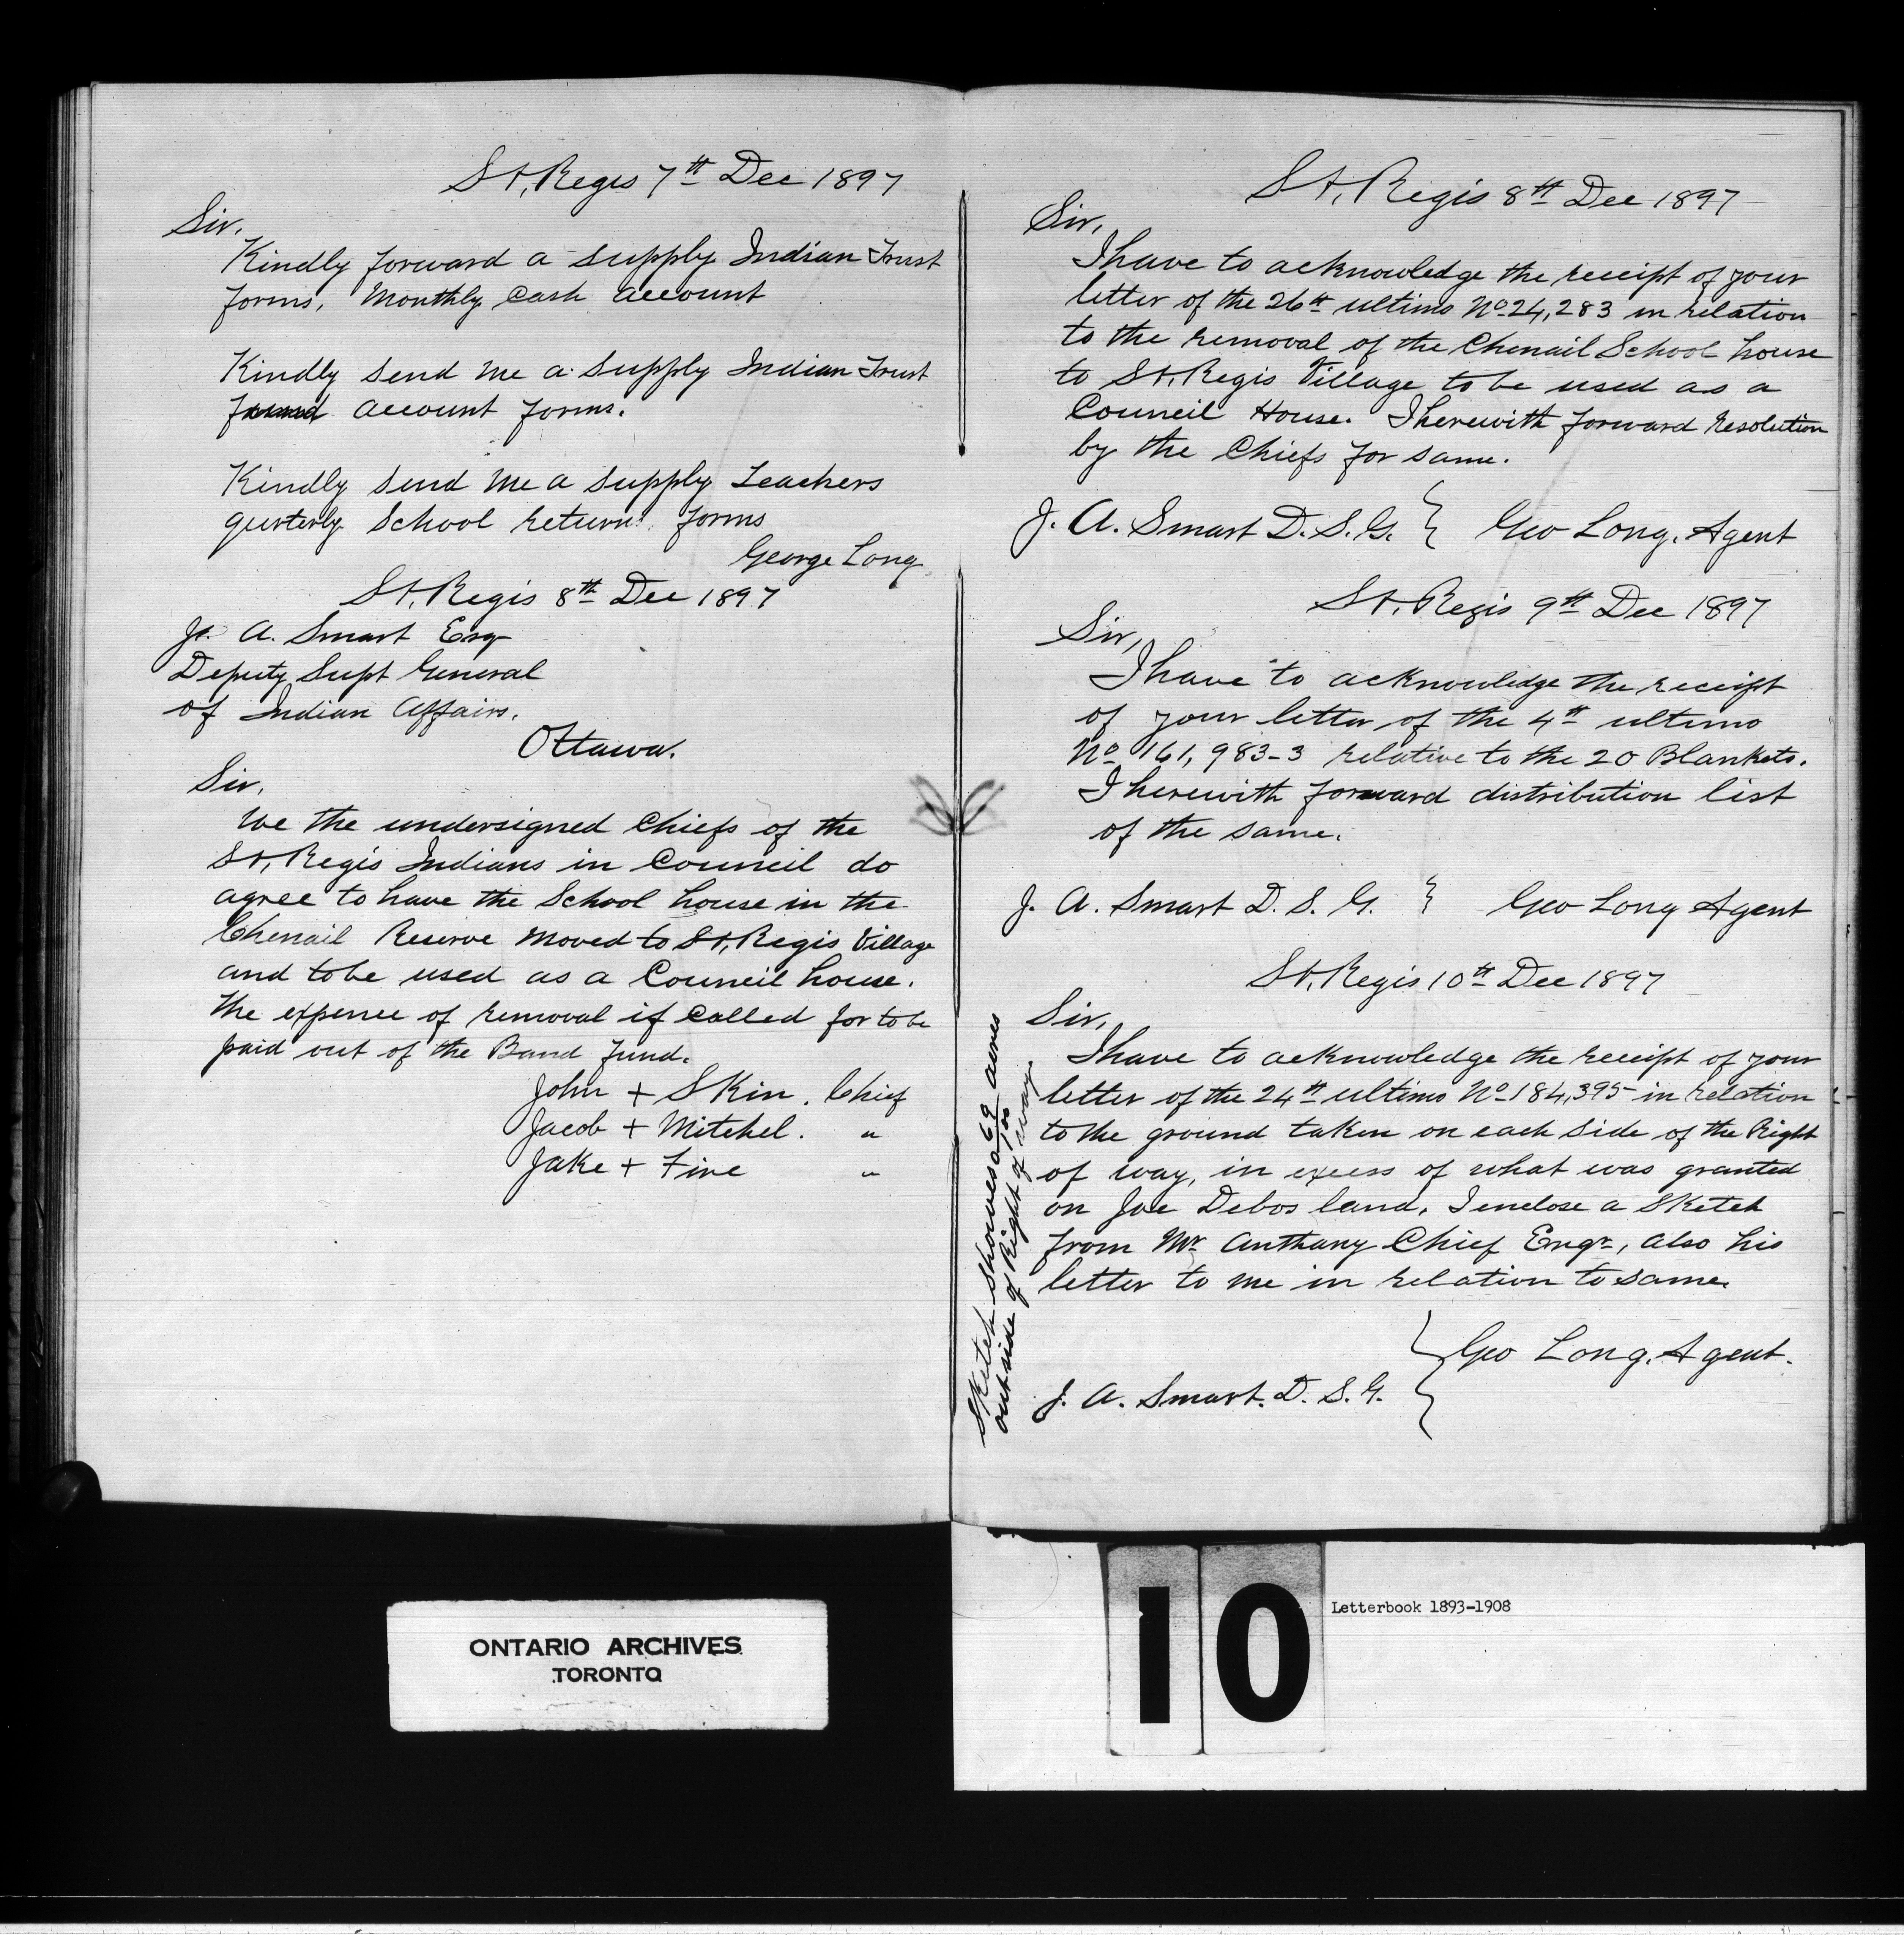 St, Regis 7th Dec 1897
Sir,
Kindly forward a supply Indian Trust
forms, Monthly Cash Account
Kindly send me a supply Indian Trust
account forms.
Kindly send me a supply Teachers
qurterly School return forms
George Long
St, Regis 8th Dec 1897
J. A. Smart Esq
Deputy Supt General
of Indian Affairs.
Ottawa.
Sir,
We the undersigned Chiefs of the
St, Regis Indians in Council do
agree to have the School house in the
Chenail Reserve moved to St, Regis Village
and to be used as a Council house.
the expence of removal if called for to be
paid out of the Band fund.
John + Skin. Chief
Jacob + Mitchel. "
Jake + Fire "
St, Regis 8th Dec 1897
Sir,
I have to acknowledge the receipt of your
letter of the 26th ultimo No 24,283 in relation
to the removal of the Chenail School house
to St, Regis Village to be used as a
Council House. I herewith forward resolution
by the Chiefs for same.
J. A. Smart D. S. G. } Geo Long, Agent
St, Regis 9th Dec 1897
Sir,
I have to acknowledge the receipt
of your letter of the 4th ultimo
No 161,983-3 relative to the 20 Blankets.
I herewith forward distribution list
of the same.
J. A. Smart D. S. G. } Geo Long Agent
St, Regis 10th Dec 1897
Sir,
I have to acknowledge the receipt of your
letter of the 24th ultimo No 184,395 in relation
to the ground taken on each side of the Right
of way, in excess of what was granted
on Joe Debos land, I enclose a sketch
from Mr Anthany Chief Engr, also his
letter to me in relation to same.
} Geo Long, Agent.
J. A. Smart. D. S. G.
Sketch showes 0 69/100 acres
outside of Right of way.
ONTARIO ARCHIVES
TORONTO
10
Letterbook 1893-1908